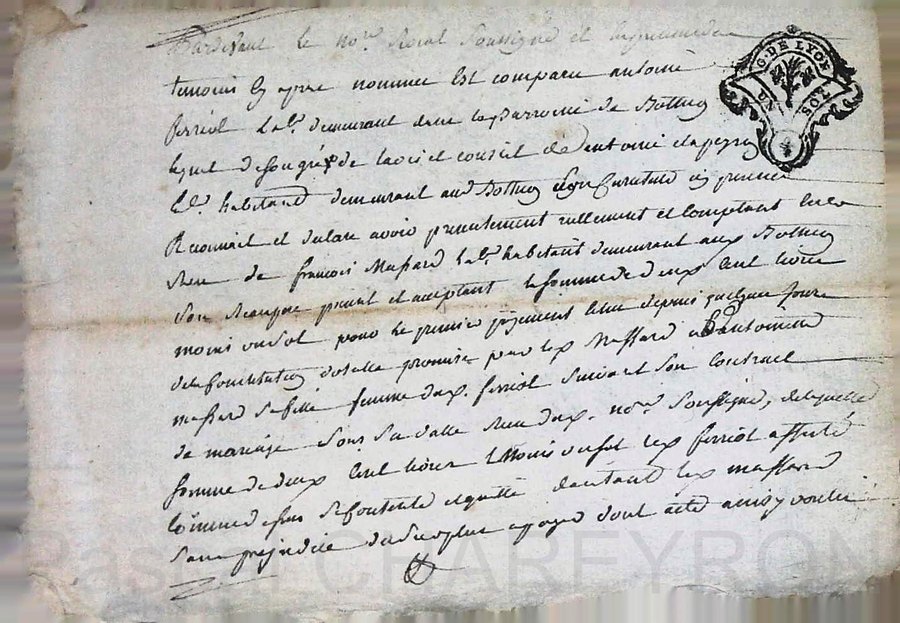 Pardevant le nore Royal soussigné et en presence des
temoins cy apres nommes est comparu antoine
ferriol labr demurant dans la parroisse de
lequel de son gré de l'avis et conseil de antoine
labr habitand demurant aud en premier
Reconnait et declare avoir presentement reellement et comptant
Receu de francois Massard labr habitant demurant aux
son beaupere present et acceptant la somme de deux cent livres
moins un sol pour le premier payement echeu depuis quelque jours
de la Constitution dotalle promise par led Massard a antoinette
massard sa fille femme dud ferriol suivant son contract
de mariage sous sa datte Receu dud nore soussigné, de laquelle
somme de deux cent livres moins un sol led ferriol
comme dessus se contente et quitte led massard
sans prejudice du surplus a payer dont acte ainsy voulu
G. DE LYON
UN SOL
Pascal CHAREYRON